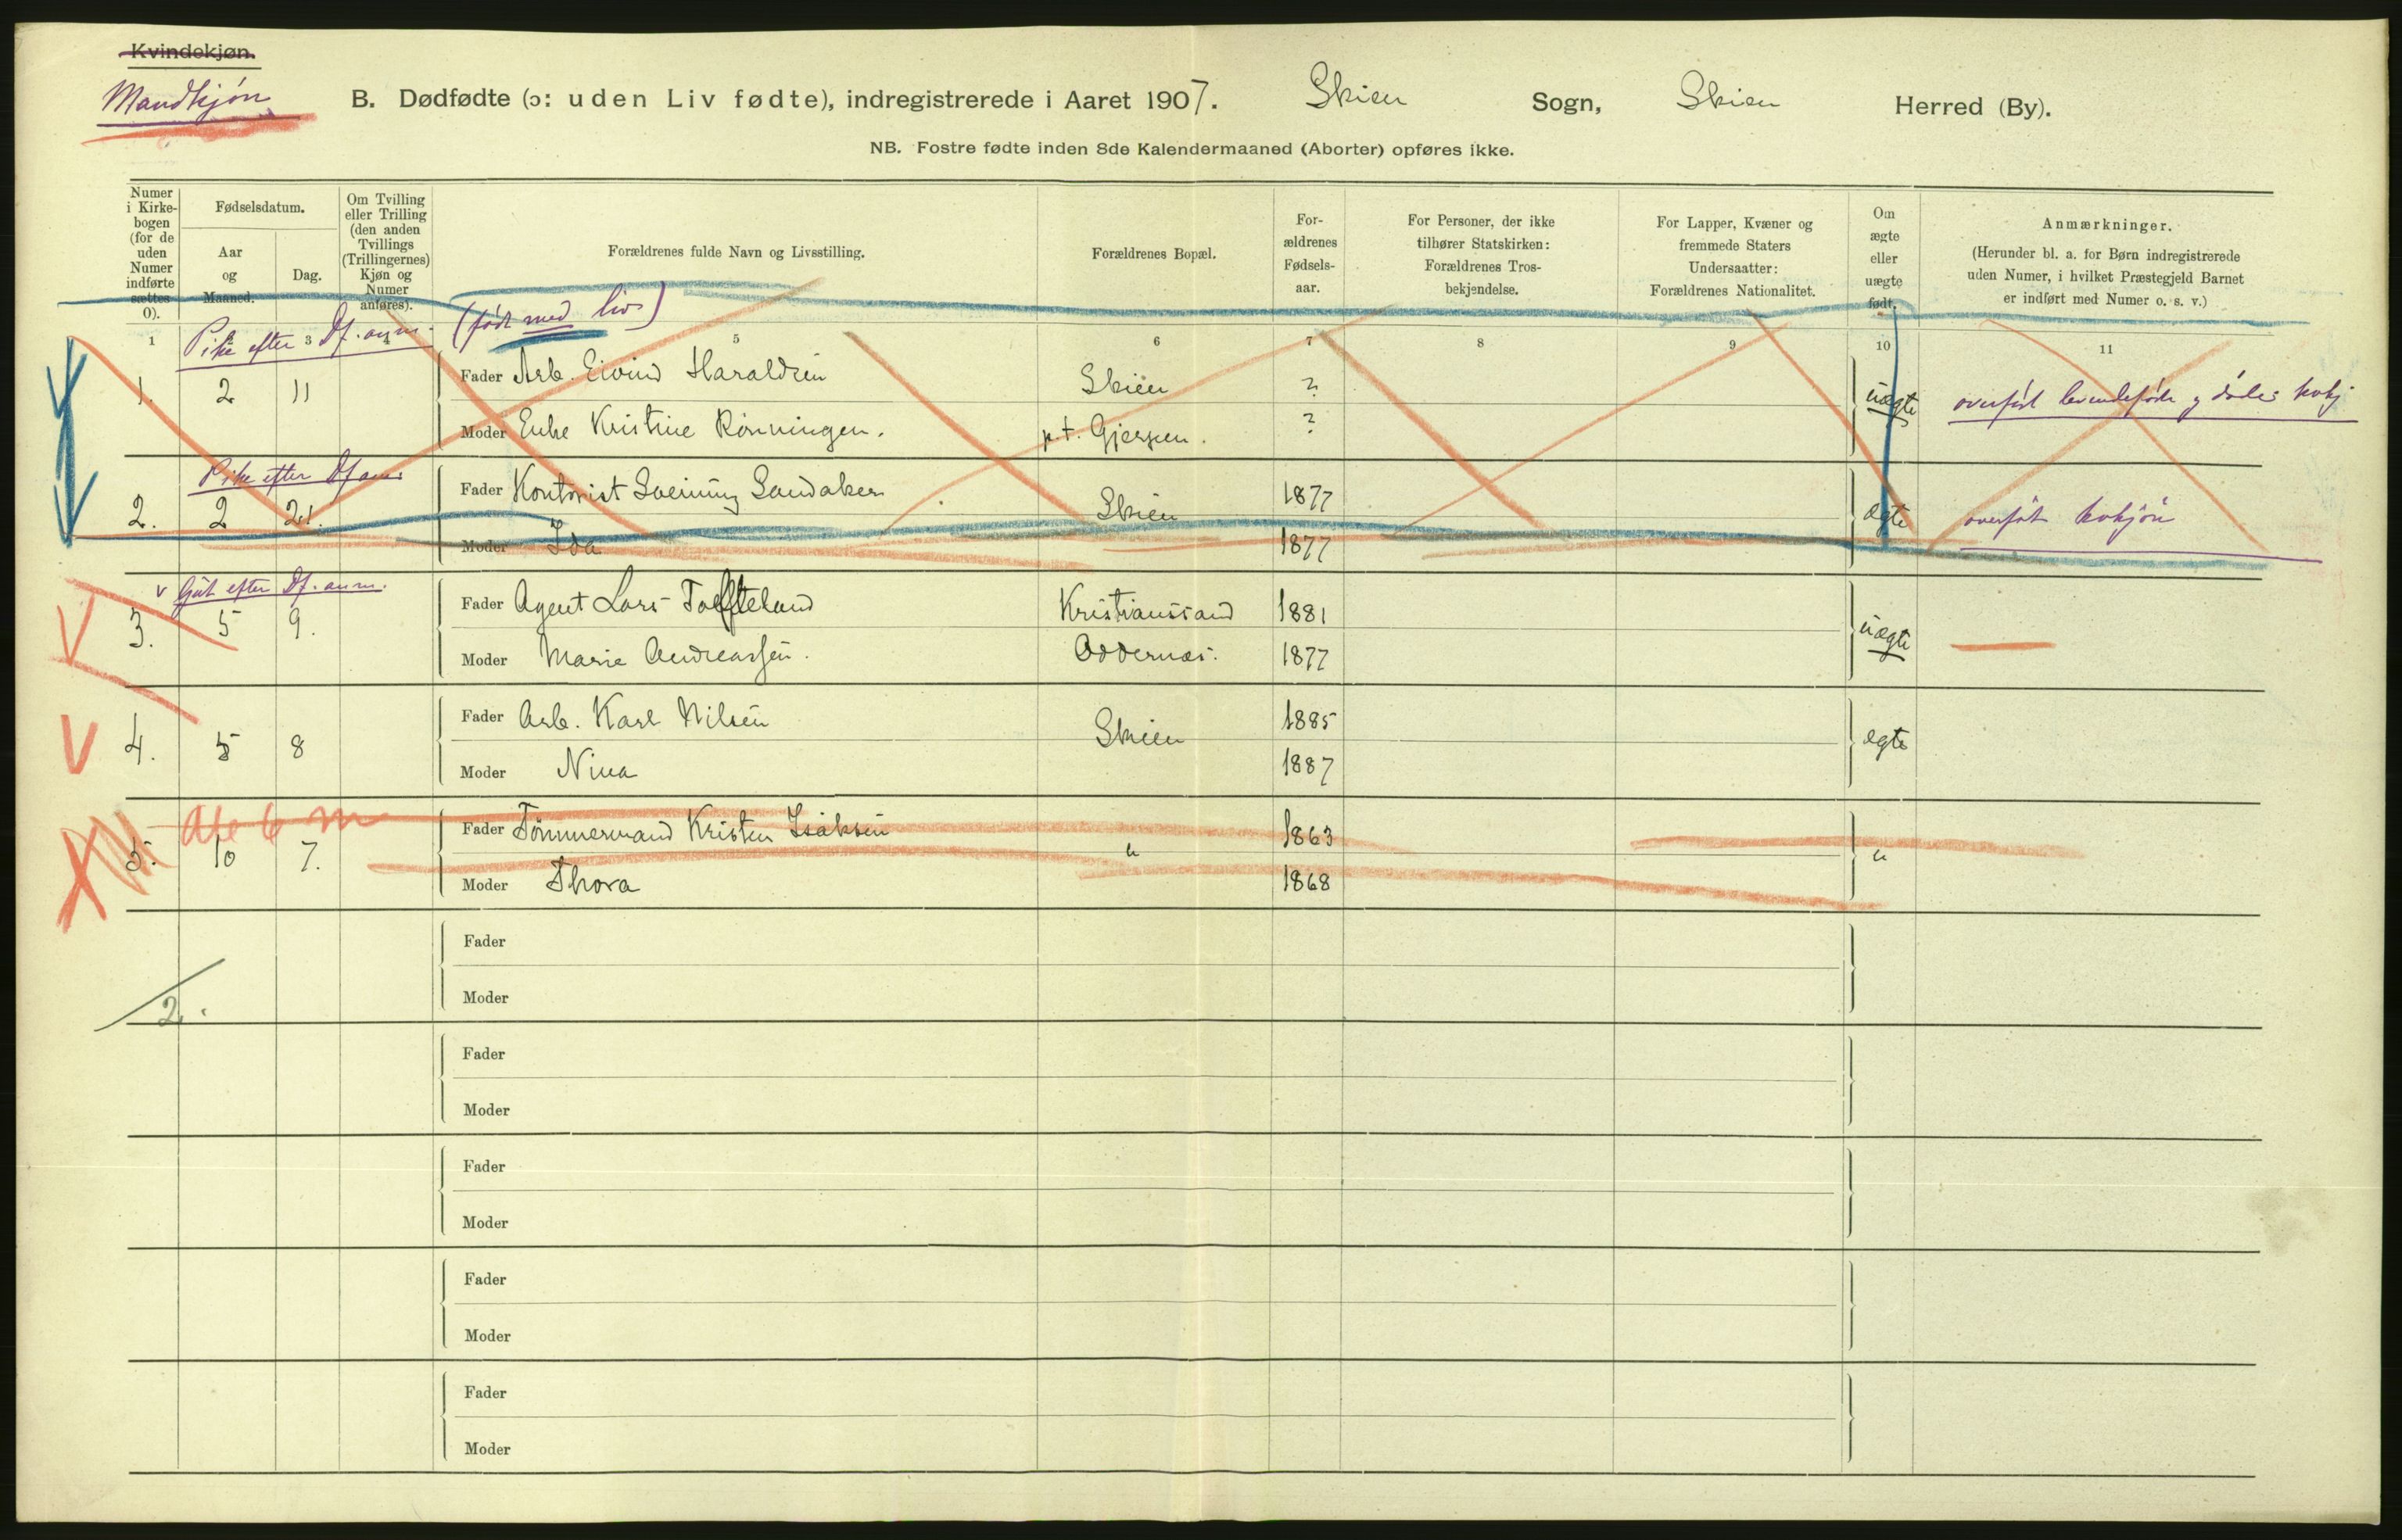 Kvindekjøn.
Mandkjøn
B. Dødfødte (ɔ: uden Liv fødte), indregistrerede i Aaret 1907. Skien Sogn, Skien Herred (By).
NB. Fostre fødte inden 8de Kalendermaaned (Aborter) opføres ikke.
Numer i Kirkebogen (for de uden Numer indførte sættes 0).
Fødselsdatum.
Aar og Maaned.
Dag.
Om Tvilling eller Trilling (den anden Tvillings (Trillingernes) Kjøn og Numer anføres).
Forældrenes fulde Navn og Livsstilling.
Forældrenes Bopæl.
Forældrenes Fødselsaar.
For Personer, der ikke tilhører Statskirken: Forældrenes Trosbekjendelse.
For Lapper, Kvæner og fremmede Staters Undersaatter: Forældrenes Nationalitet.
Om ægte eller uægte født.
Anmærkninger.
(Herunder bl. a. for Børn indregistrerede uden Numer, i hvilket Præstegjeld Barnet er indført med Numer o. s. v.)
1 2 3 4 5 6 7 8 9 10 11
Pike efter Df. anm. (født med liv)
1. 2 11 Fader Arb. Eivind Haraldsen Skien ? uægte overført levendefødte og døde kvkj
Moder Enke Kristine Rönningen. p.t. Gjerpen. ?
Pike efter Df anm.
2. 2 21. Fader Kontorist Sveinung Sandaker Skien 1877 ægte overført kvkjön
Moder Ida 1877
v Gut efter Df. anm.
3. 5 9. Fader Agent Lars Tofteland Kristianssand 1881 uægte —
Moder Marie Andreassen. Oddernes. 1877
4. 5 8 Fader Arb. Karl Nilsen Skien 1885 ægte
Moder Nina 1887
5. 10 7. Fader Tömmermand Kristen Isaksen " 1863 "
Moder Thora 1868
Fader
Moder
2.
Fader
Moder
Fader
Moder
Fader
Moder
Fader
Moder